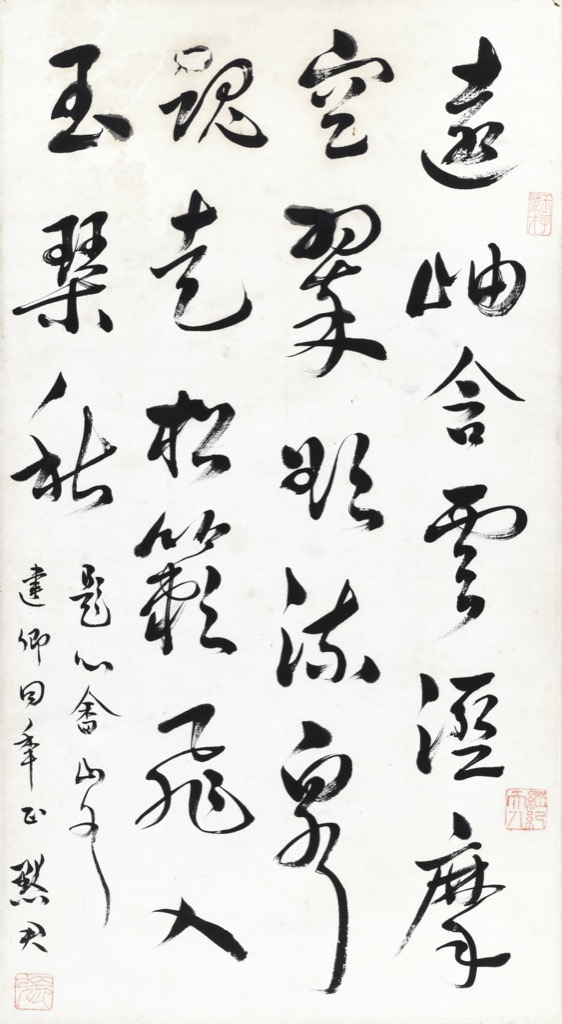 遠岫含雲溼摩
空翠欲流泉
魂走松籟飛入
玉琴秋
題心畬山水
建卿同年正 默君
張